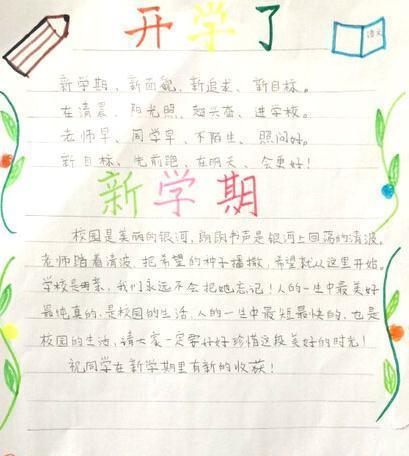 开学了
语文
新学期、新面貌、新追求、新目标。
在清晨、阳光照、起头奋、进学校。
老师早、同学早、不陌生、照问好。
新目标、先前跑、在明天、会更好!
新学期
校园是美丽的银河,朗朗书声是银河上回荡的清波。
老师踏着清波,把希望的种子播撒,希望就从这里开始。
学校是,我们永远不会把她忘记!人的一生中最美好
最纯真的,是校园的生活,人的一生中最短最快的,也是
校园的生活,请大家一定要好好珍惜这段美好的时光!
祝同学在新学期里有新的收获!